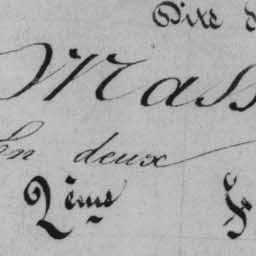 Dite d
Mass
En deux
2ème